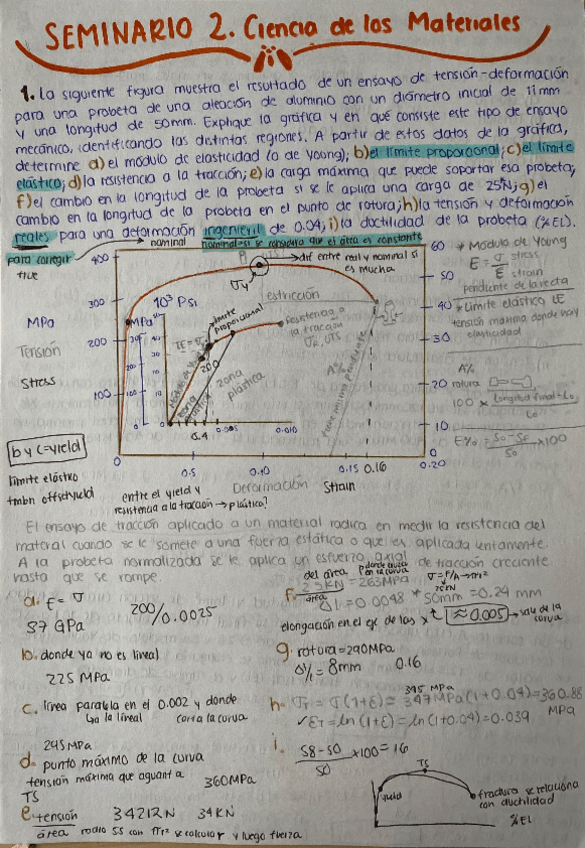 SEMINARIO 2. Ciencia de los Materiales
1. La siguiente figura muestra el resultado de un ensayo de tensión-deformación
para una probeta de una aleación de aluminio con un diámetro inicial de 11mm
y una longitud de 50mm. Explique la gráfica y en qué consiste este tipo de ensayo
mecánico, identificando las distintas regiones. A partir de estos datos de la gráfica,
determine a) el módulo de elasticidad (o de Young); b) el límite proporcional; c) el límite
elástico; d) la resistencia a la tracción; e) la carga máxima que puede soportar esa probeta;
f) el cambio en la longitud de la probeta si se le aplica una carga de 25N; g) el
cambio en la longitud de la probeta en el punto de rotura; h) la tensión y deformación
reales para una deformación ingenieril de 0.04; i) la ductilidad de la probeta (%EL).
para corregir
true
nominal
nominal-si se considera que el área es constante
dif entre real y nominal si
es mucha
400
300
200
100
0
MPa
Tensión
Stress
10³ Psi
MPa
límite
proporcional
estricción
resistencia a
la tracción
UTS
zona
plástica
0.005
0.010
0.5
0.10
0.15
0.16
0.20
60
50
40
30
20
10
0
* Módulo de Young
E = σ stress
E strain
pendiente de la recta
* Límite elástico LE
tensión máxima donde hay
elasticidad
A%
rotura
100 × longitud final - Lo
Lo
E% = So-Sf ×100
So
b y c = yield
límite elástico
tmbn offset yield
entre el yield y
resistencia a la tracción → plástica?
Deformación Strain
El ensayo de tracción aplicado a un material radica en medir la resistencia del
material cuando se le somete a una fuerza estática o que es aplicada lentamente.
A la probeta normalizada se le aplica un esfuerzo axial de tracción creciente
hasta que se rompe.
a. E = σ 200/0.0025
37 GPa
b. donde ya no es lineal
225 MPa
c. línea paralela en el 0.002 y donde
corta la curva
245 MPa
d. punto máximo de la curva
tensión máxima que aguanta 360MPa
TS
e. tensión 34212N 34KN
área radio 5.5 con πr² se calcula r y luego fuerza
f. 25KN = 263MPa
área
σ = F/A → πr²
25KN
Δl = 0.0048 * 50mm = 0.24 mm
elongación en el eje de las x ≈ 0.005 → sale de la
curva
g. rotura = 290MPa
Δl = 8mm 0.16
h. σT = σ(1+E) = 347MPa (1 + 0.04) = 360.88
MPa
✓ ET = ln (1+E) = ln (1+0.04) = 0.039
i. 58-50 ×100 = 16
50
yield
TS
fractura se relaciona
con ductilidad
%EL